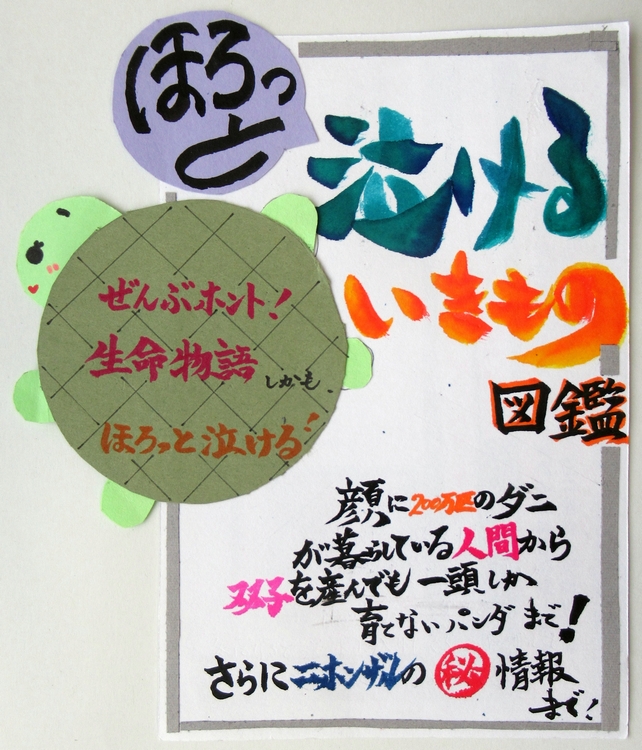 ほろっ
と
泣ける
いきもの
図鑑
ぜんぶホント!
生命物語
しかも、
ほろっと泣ける!
顔に200万匹のダニ
が暮らしている人間から
双子を産んでも一頭しか
育てないパンダまで!
さらにニホンザルの㊙情報
まで!